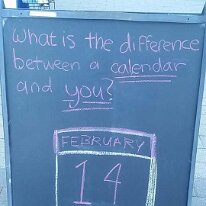 What is the difference
between a calendar
and you?
FEBRUARY
14